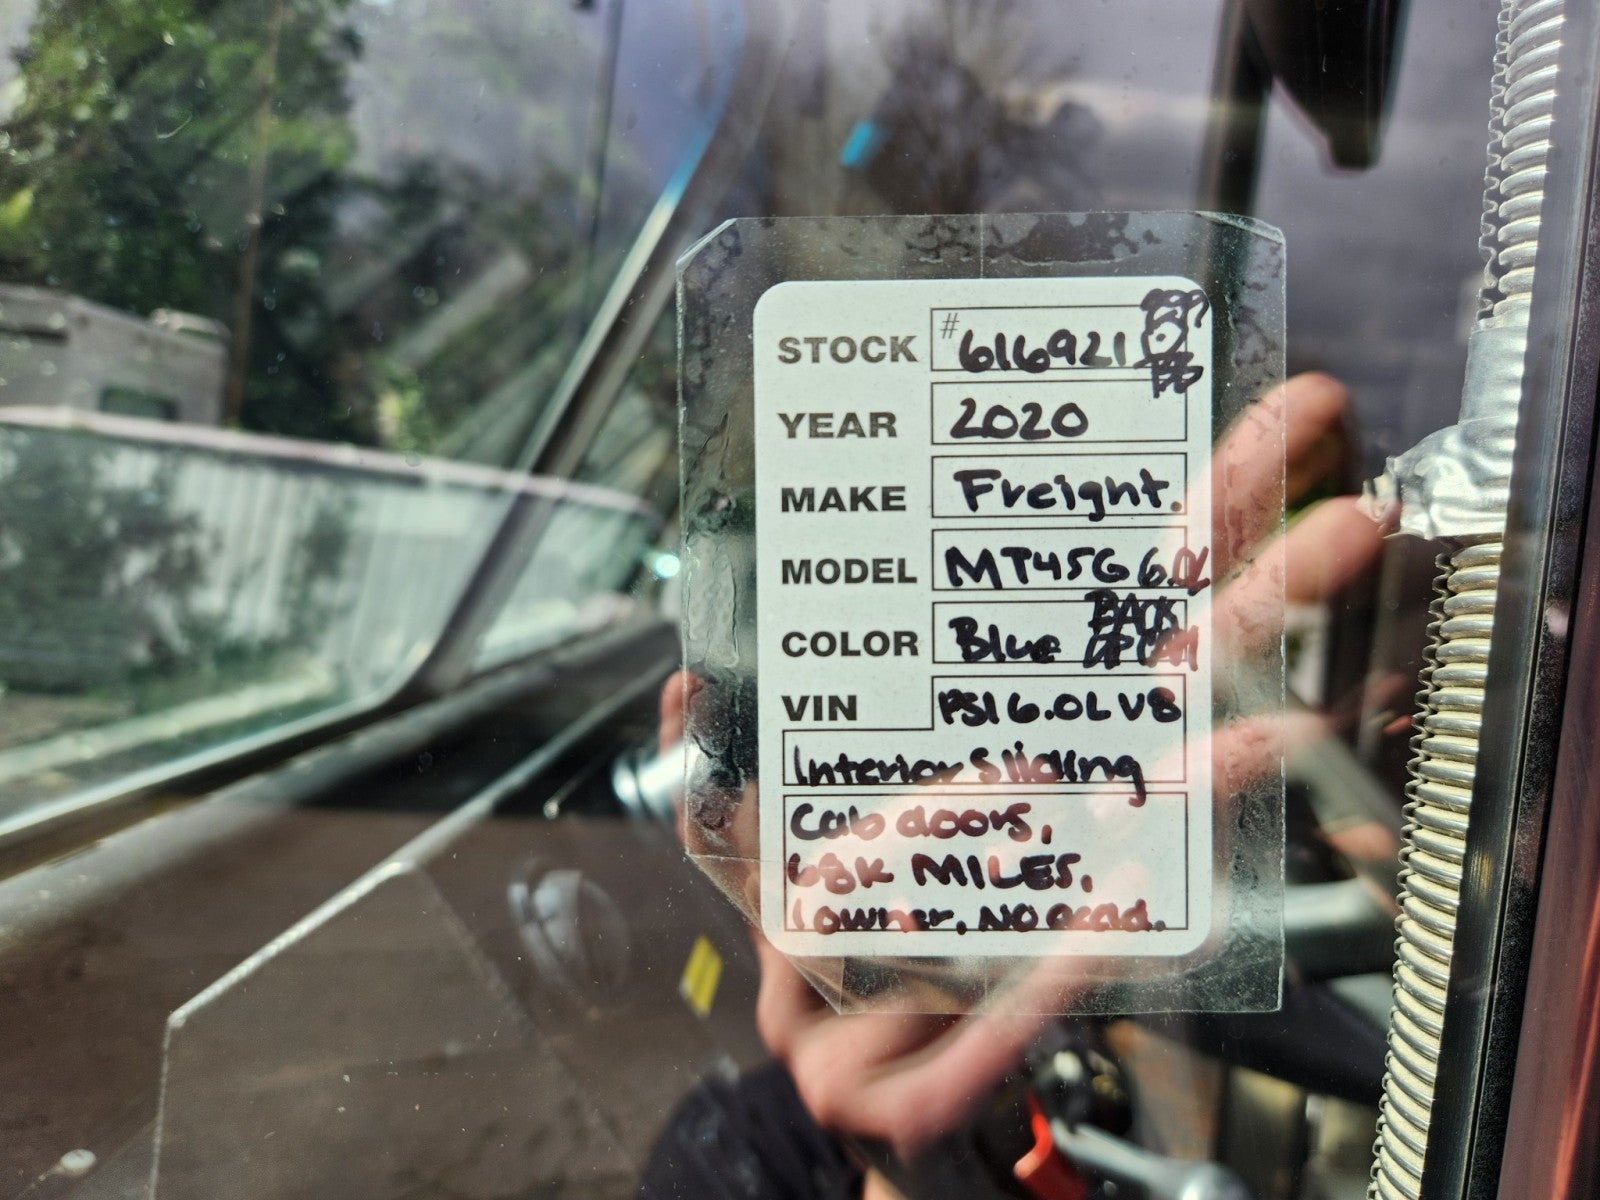 STOCK # 616921
YEAR 2020
MAKE Freight.
MODEL MT45G 6.0L
COLOR Blue BACK UP CAM
VIN PSI 6.0L V8
Interior Sliding
Cab doors,
68K MILES,
1 owner, NO accd.